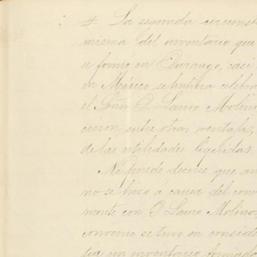 4. La segunda circunst
misma del inventario que
se formó en Durango, casi
en México se habrían celebra
el Señor D. Lauro Molino
cieron entre otras ventajas,
de las utilidades líquidas
No puede decirse que au
no se hace a causa del conv
mente con D. Lauro Molinos
convenio se tuvo en conside
un inventario formado